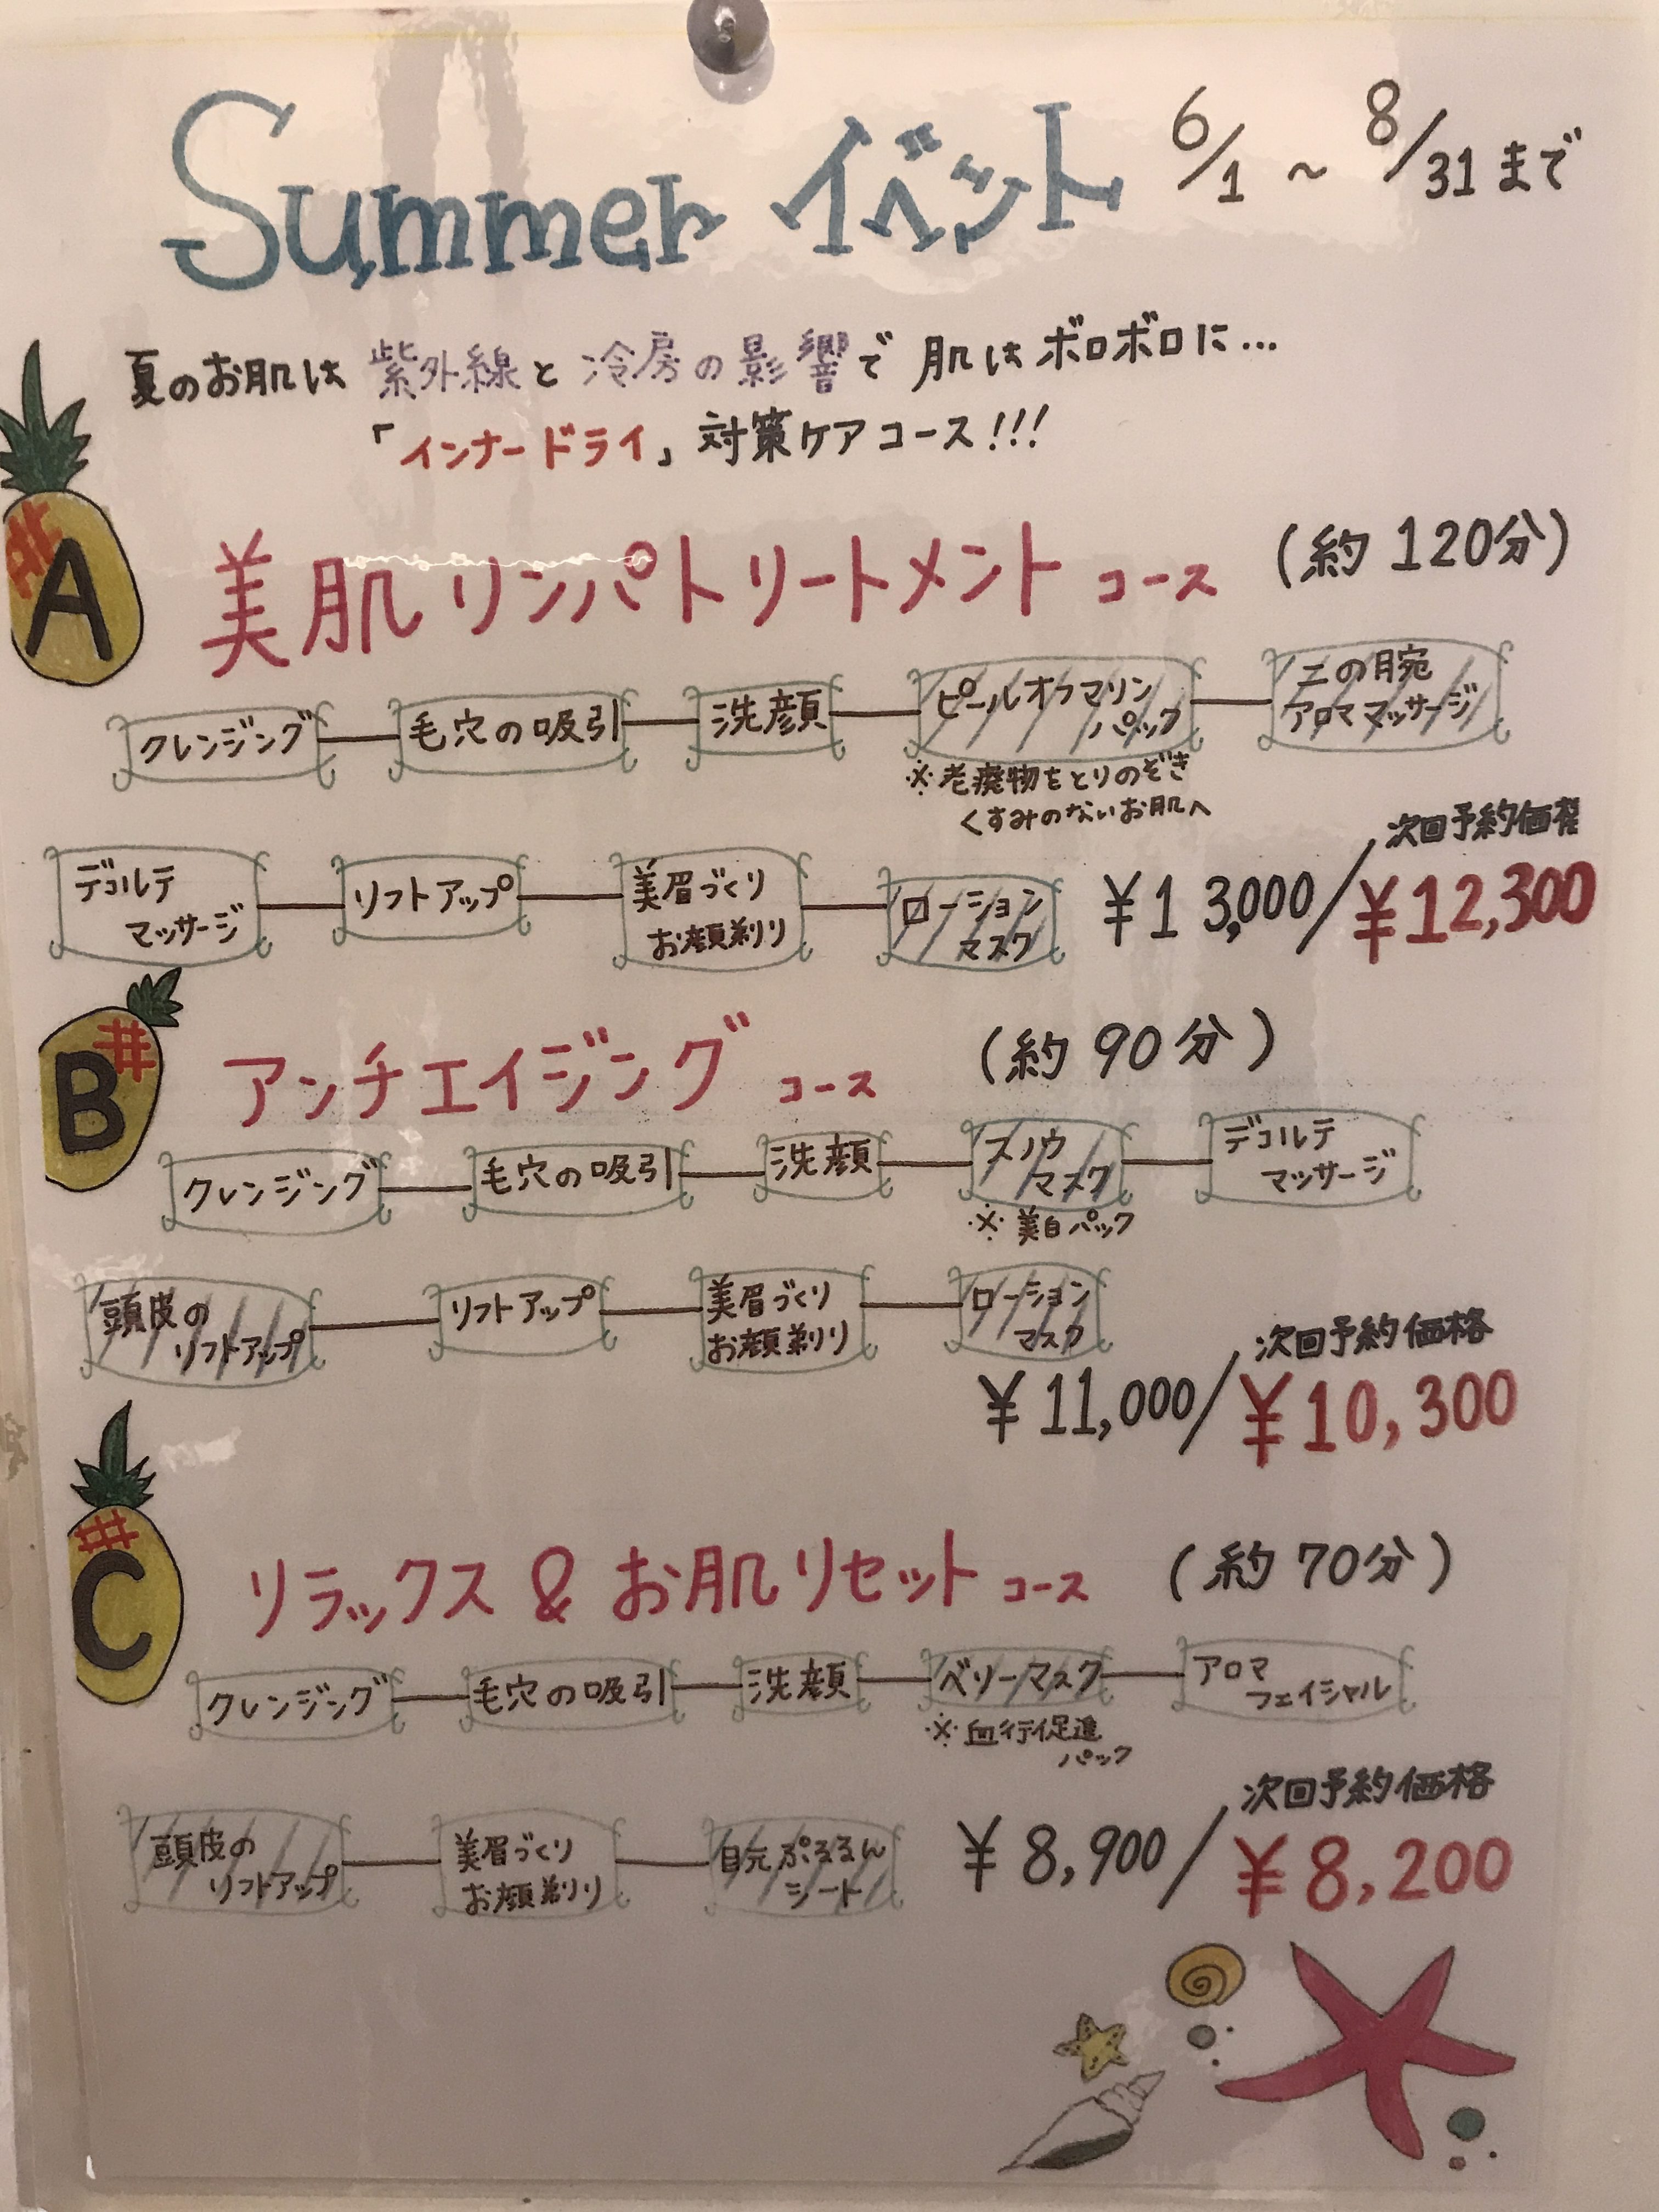 Summer イベント 6/1 ~ 8/31 まで
夏のお肌は 紫外線と冷房の影響で 肌はボロボロに…
「インナードライ」対策ケアコース!!!
A 美肌リンパトリートメント コース (約 120分)
クレンジング 毛穴の吸引 洗顔 ピールオフマリン 二の腕
パック アロママッサージ
※老廃物をとりのぞき
くすみのないお肌へ
次回予約価格
デコルテ リフトアップ 美眉づくり ローション ¥13,000/¥12,300
マッサージ お顔剃り マスク
B アンチエイジング コース (約 90分)
クレンジング 毛穴の吸引 洗顔 スノウ デコルテ
マスク マッサージ
※美白パック
頭皮の リフトアップ 美眉づくり ローション
リフトアップ お顔剃り マスク
次回予約価格
¥11,000/¥10,300
C リラックス & お肌リセット コース (約 70分)
クレンジング 毛穴の吸引 洗顔 ベリーマスク アロマ
フェイシャル
※血行促進
パック
次回予約価格
頭皮の 美眉づくり 目元ぷるるん ¥8,900/¥8,200
リフトアップ お顔剃り シート